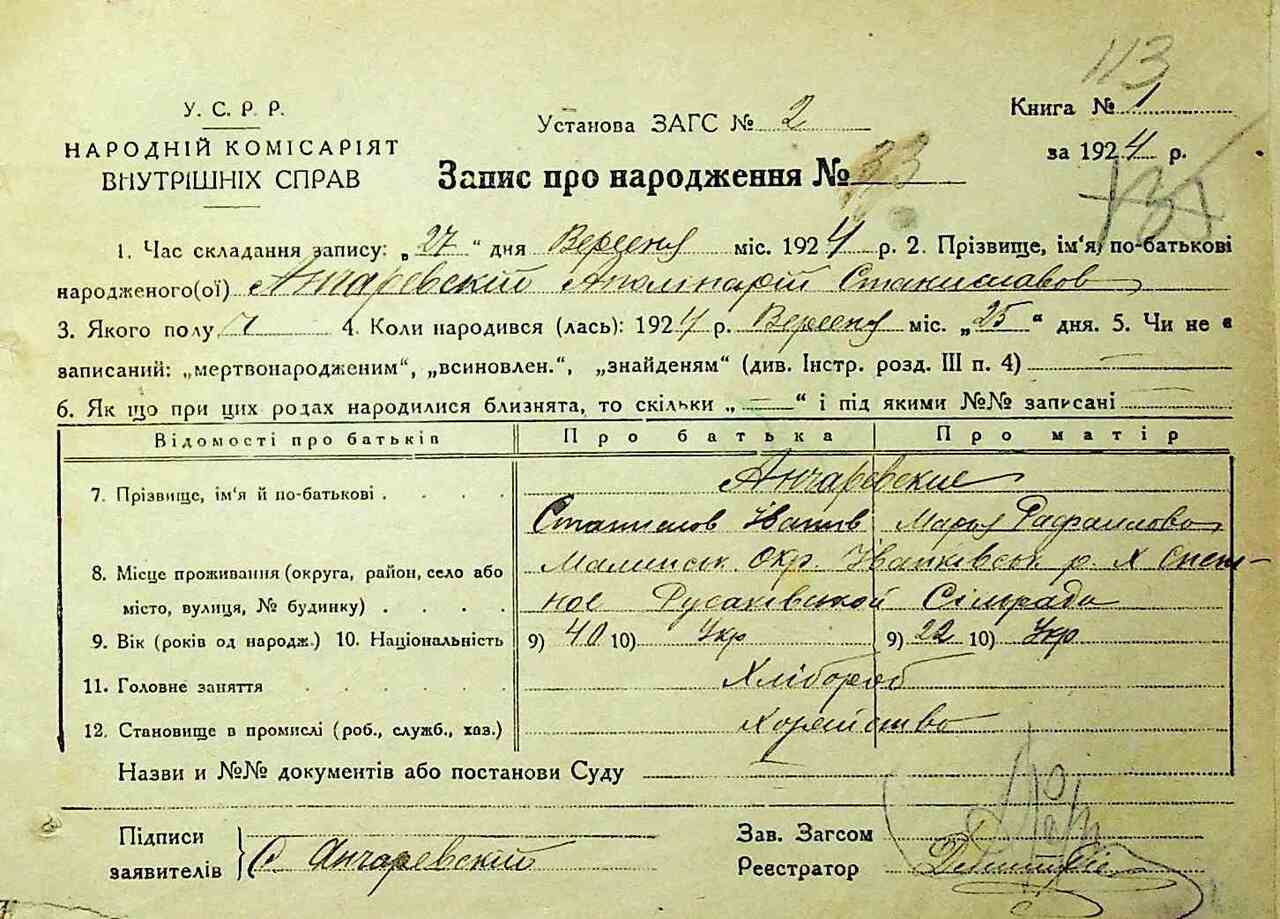 113
У. С. Р. Р.
НАРОДНІЙ КОМІСАРІЯТ
ВНУТРІШНІХ СПРАВ
Установа ЗАГС № 2
Книга № 1
за 1924 р.
Запис про народження № 33
1. Час складання запису: „27“ дня Вересня міс. 1924 р. 2. Прізвище, ім'я, по-батькові
народженого(ої) Анчаревскій Аполінарій Станиславов
3. Якого полу ч 4. Коли народився (лась): 1924 р. Вересня міс. „25“ дня. 5. Чи не є
записаний: „мертвонародженим“, „всиновлен.“, „знайденям“ (див. Інстр. розд. III п. 4)
6. Як що при цих родах народилися близнята, то скільки „—“ і під якими №№ записані
Відомості про батьків Про батька Про матір
7. Прізвище, ім'я й по-батькові . . . . Анчаревские
Станислов Іванів Марья Рафаилова
8. Місце проживання (округа, район, село або Малинськ Окр. Іванківськ р. Х
місто, вулиця, № будинку) . . . . ное Русаківської Сілради
9. Вік (років од народж.) 10. Національність 9) 40 10) Укр 9) 22 10) Укр
11. Головне заняття . . . . . Хлібороб
12. Становище в промислі (роб., служб., хаз.) Хозяйство
Назви и №№ документів або постанови Суду
Підписи
заявителів С. Анчаревскій
Зав. Загсом
Реєстратор